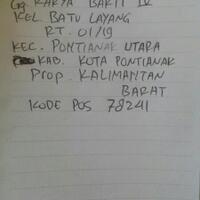 Gg. KARYA BAKTI IV
KEL. BATU LAYANG
RT. 01/19
KEC. PONTIANAK UTARA
KAB. KOTA PONTIANAK
PROP. KALIMANTAN
BARAT
KODE POS 78241